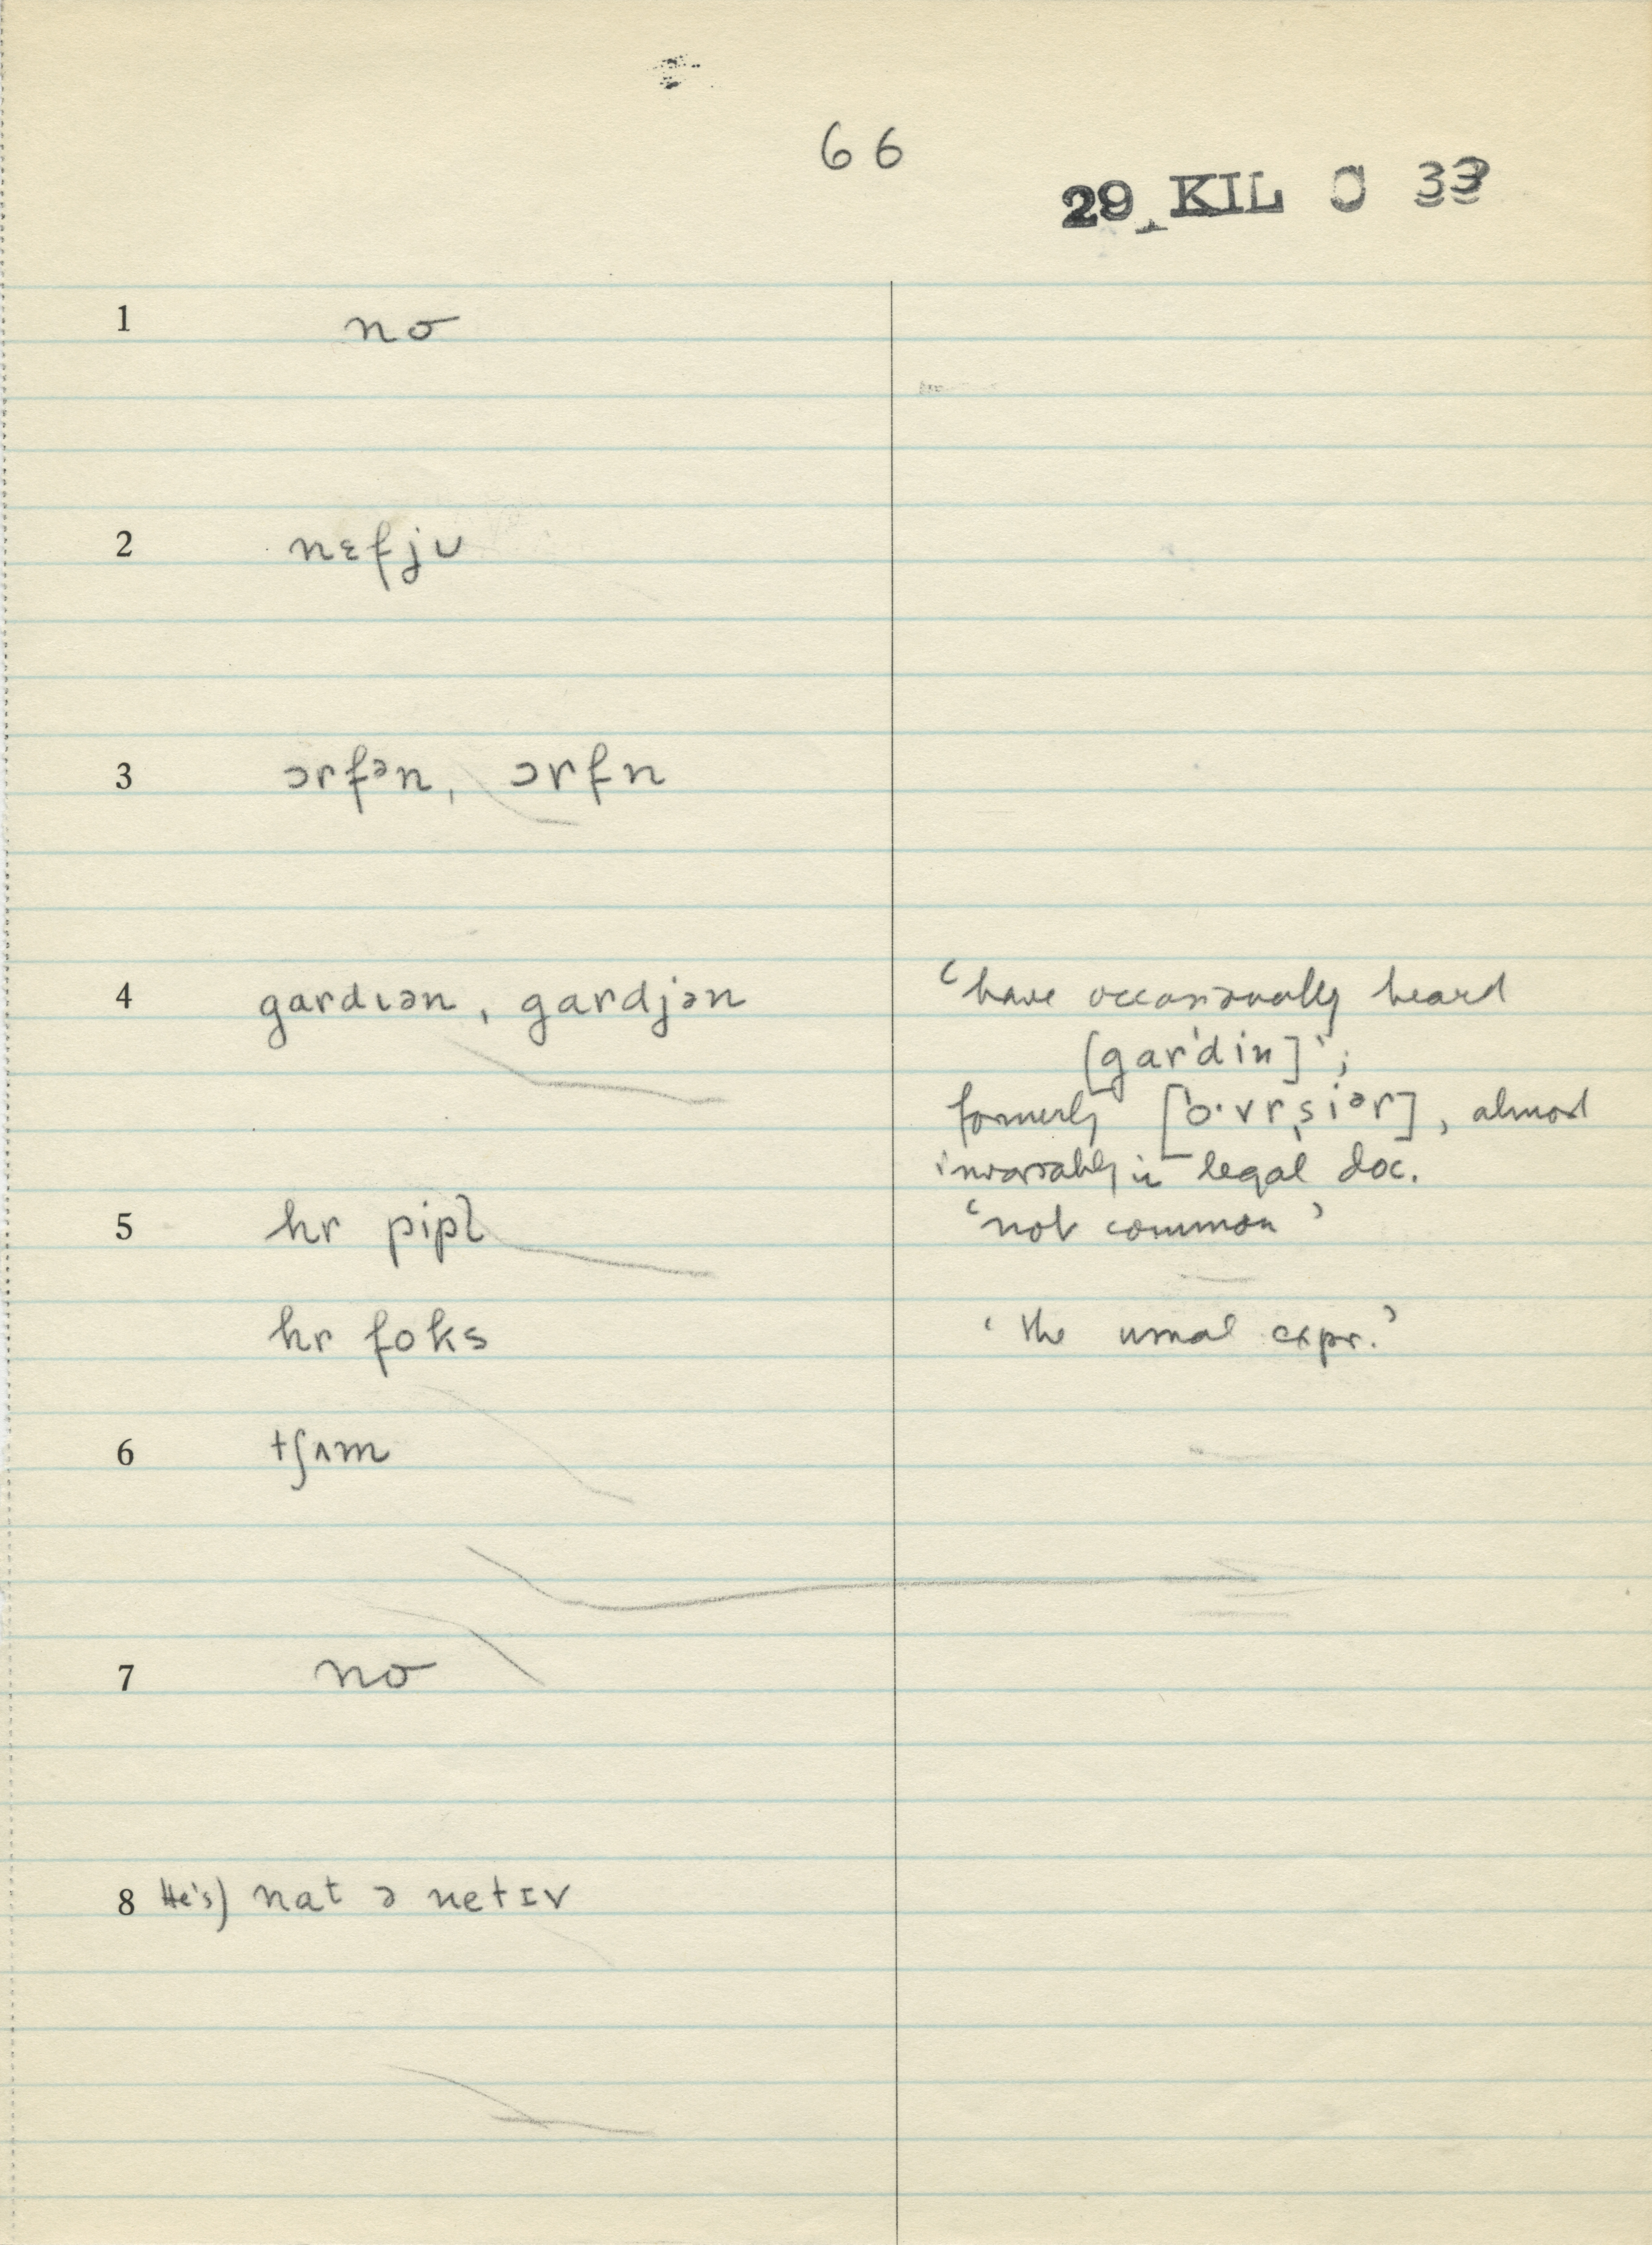 66
29 KIL C 33
1 no
2 nɛfjᴜ
3 ɔrfᵊn, ɔrfn
4 gardɪən, gardjən ‘have occasionally heard
[garˈdin]’;
formerly [ˈo·vrˌsiᵊr], almost
invariably in legal doc.
5 hr pipl̩ ‘not common’
hr foks ‘the usual expr.’
6 tʃʌm
7 no
8 He's) nat ə netɪv